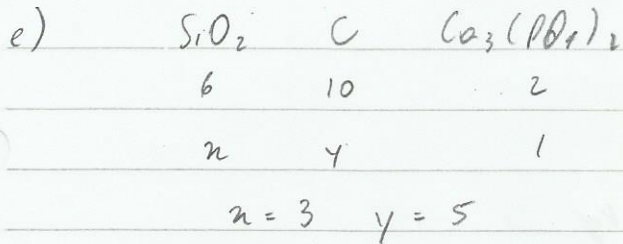 e) SiO2 C Ca3(PO4)2
6 10 2
x y 1
x = 3 y = 5